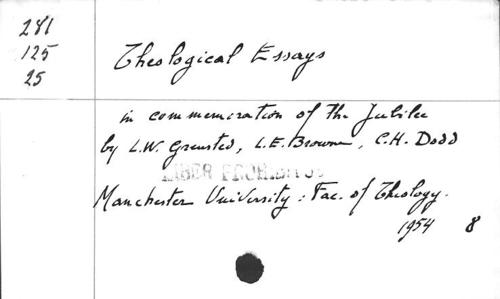 281
125
25
Theological Essays
in commemoration of the Jubilee
by L.W. Grensted, L.E. Browne, C.H. Dodd
LIBER PROHIBITUS
Manchester University: Fac. of Theology.
1954 8